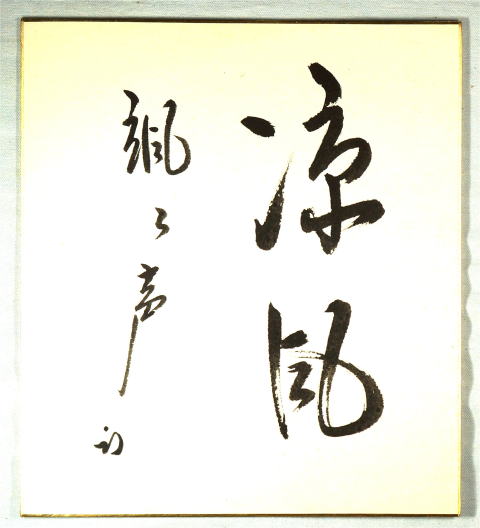 涼風
颯々声